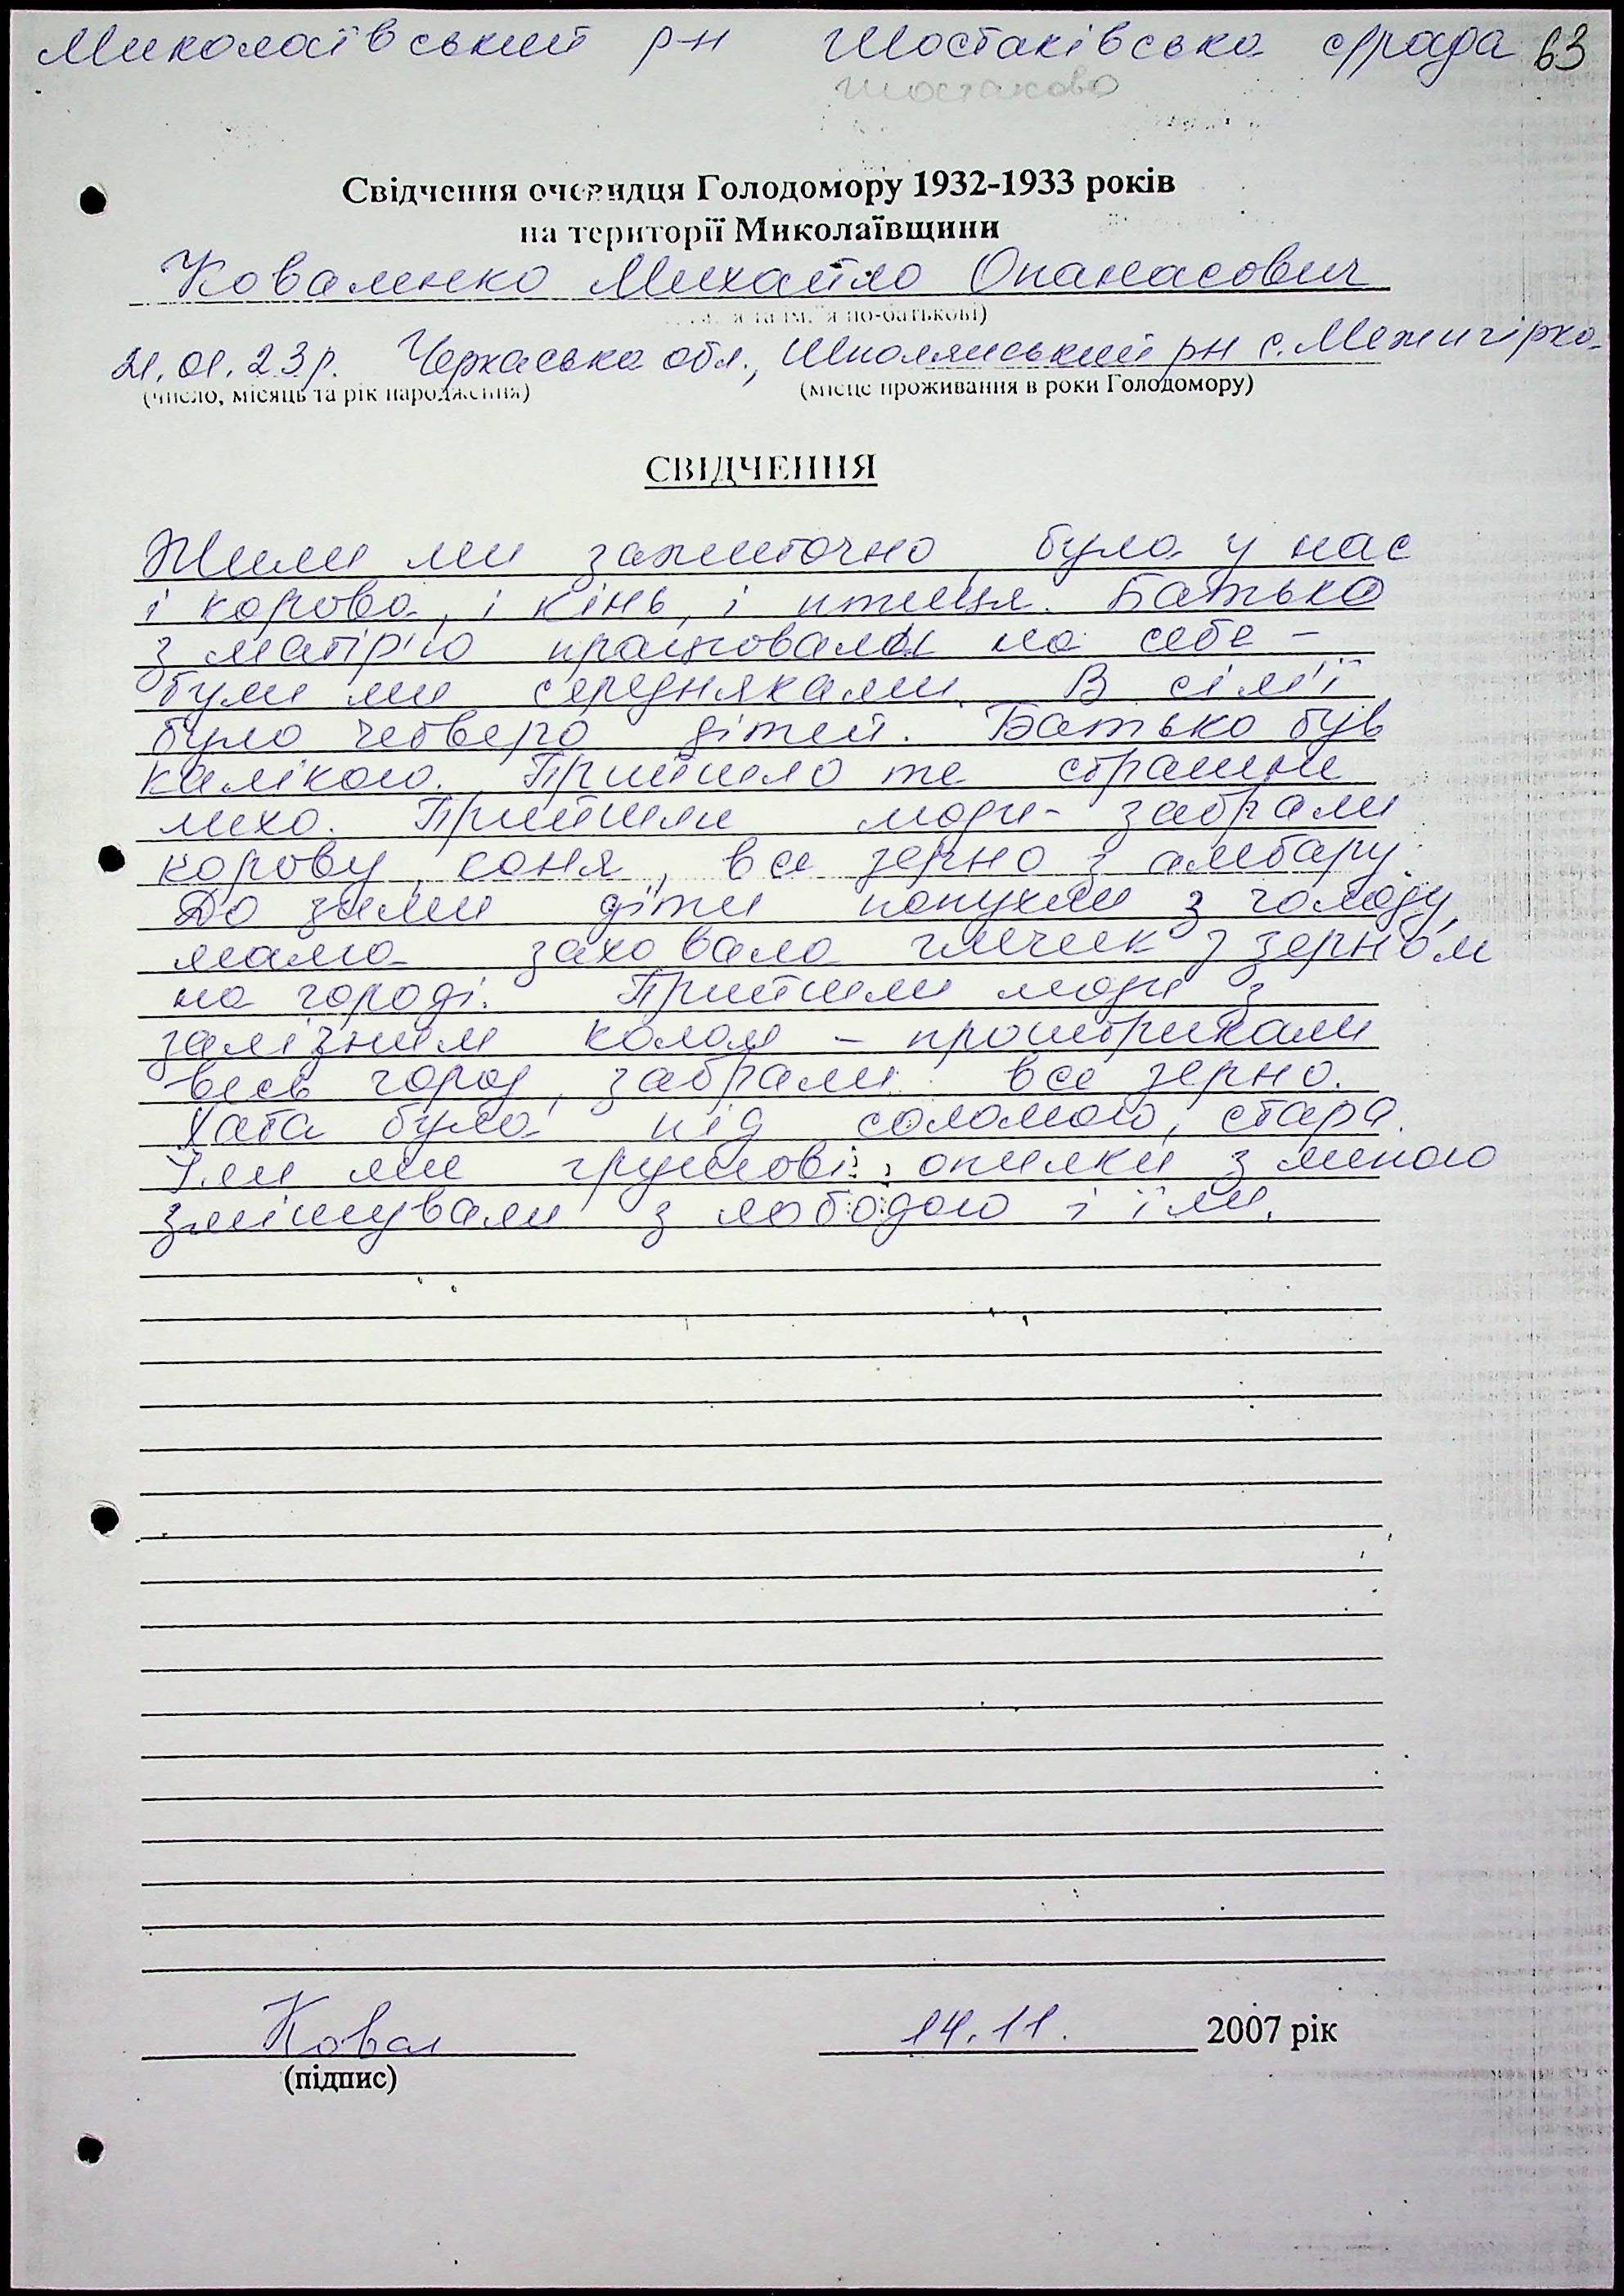 Миколаївський р-н Шостаківська с/рада 63
Шостаково
Свідчення очевидця Голодомору 1932-1933 років
на території Миколаївщини
Коваленко Михайло Опанасович
по-батькові)
21.01.23р. Черкаська обл., Шполянський рн с. Межигірка
(число, місяць та рік народження) (місце проживання в роки Голодомору)
СВІДЧЕННЯ
Жили ми зажиточно, була у нас
і корова, і кінь, і птиця. Батько
з матір'ю працювали на себе –
були ми середняками. В сім'ї
було четверо дітей. Батько був
калікою. Прийшло те страшне
лихо. Прийшли люди – забрали
корову, коня, все зерно з амбару.
До зими діти попухли з голоду,
мама заховала глечик з зерном
на городі. Прийшли люди з
залізним колом – проштрикали
весь город, забрали все зерно.
Хата була під соломою, стара.
Їли ми грушові опилки з липою
змішували з лободою і їли.
Ковал
(підпис)
14.11. 2007 рік